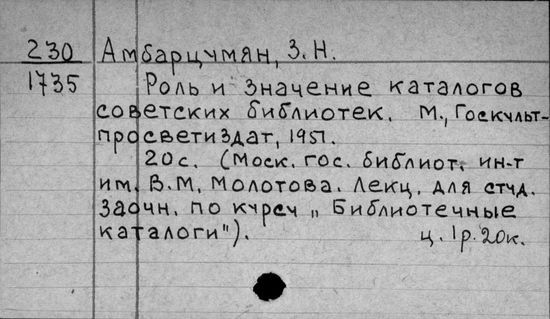 230 Амбарцумян, З.Н.
1735 Роль и значение каталогов
советских библиотек. М., Госкульт-
просветиздат, 1951.
20с. (Моск. гос. библиот. ин-т
им. В.М. Молотова. Лекц. для студ.
заочн. по курсу „Библиотечные
каталоги").
ц. 1р. 20к.